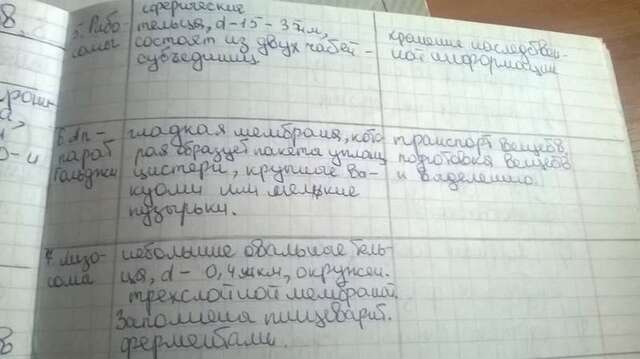 8.
сферические
5. Рибо-
сомы
тельца, d - 15 - 3 нм,
состоят из двух частей -
субъединиц
хранения наследствен-
ной информации
6. Ап-
парат
Гольджи
гладкая мембрана, кото
рая образует пакеты уплощ
цистерн, крупные ва-
куоли или мелкие
пузырьки.
транспорт веществ,
подготовка веществ
к выделению.
7. лизо-
сома
небольшие овальные тель-
ца, d - 0,4 мкм, окружен.
трехслойной мембраной.
Заполнена пищеварит.
ферментами.